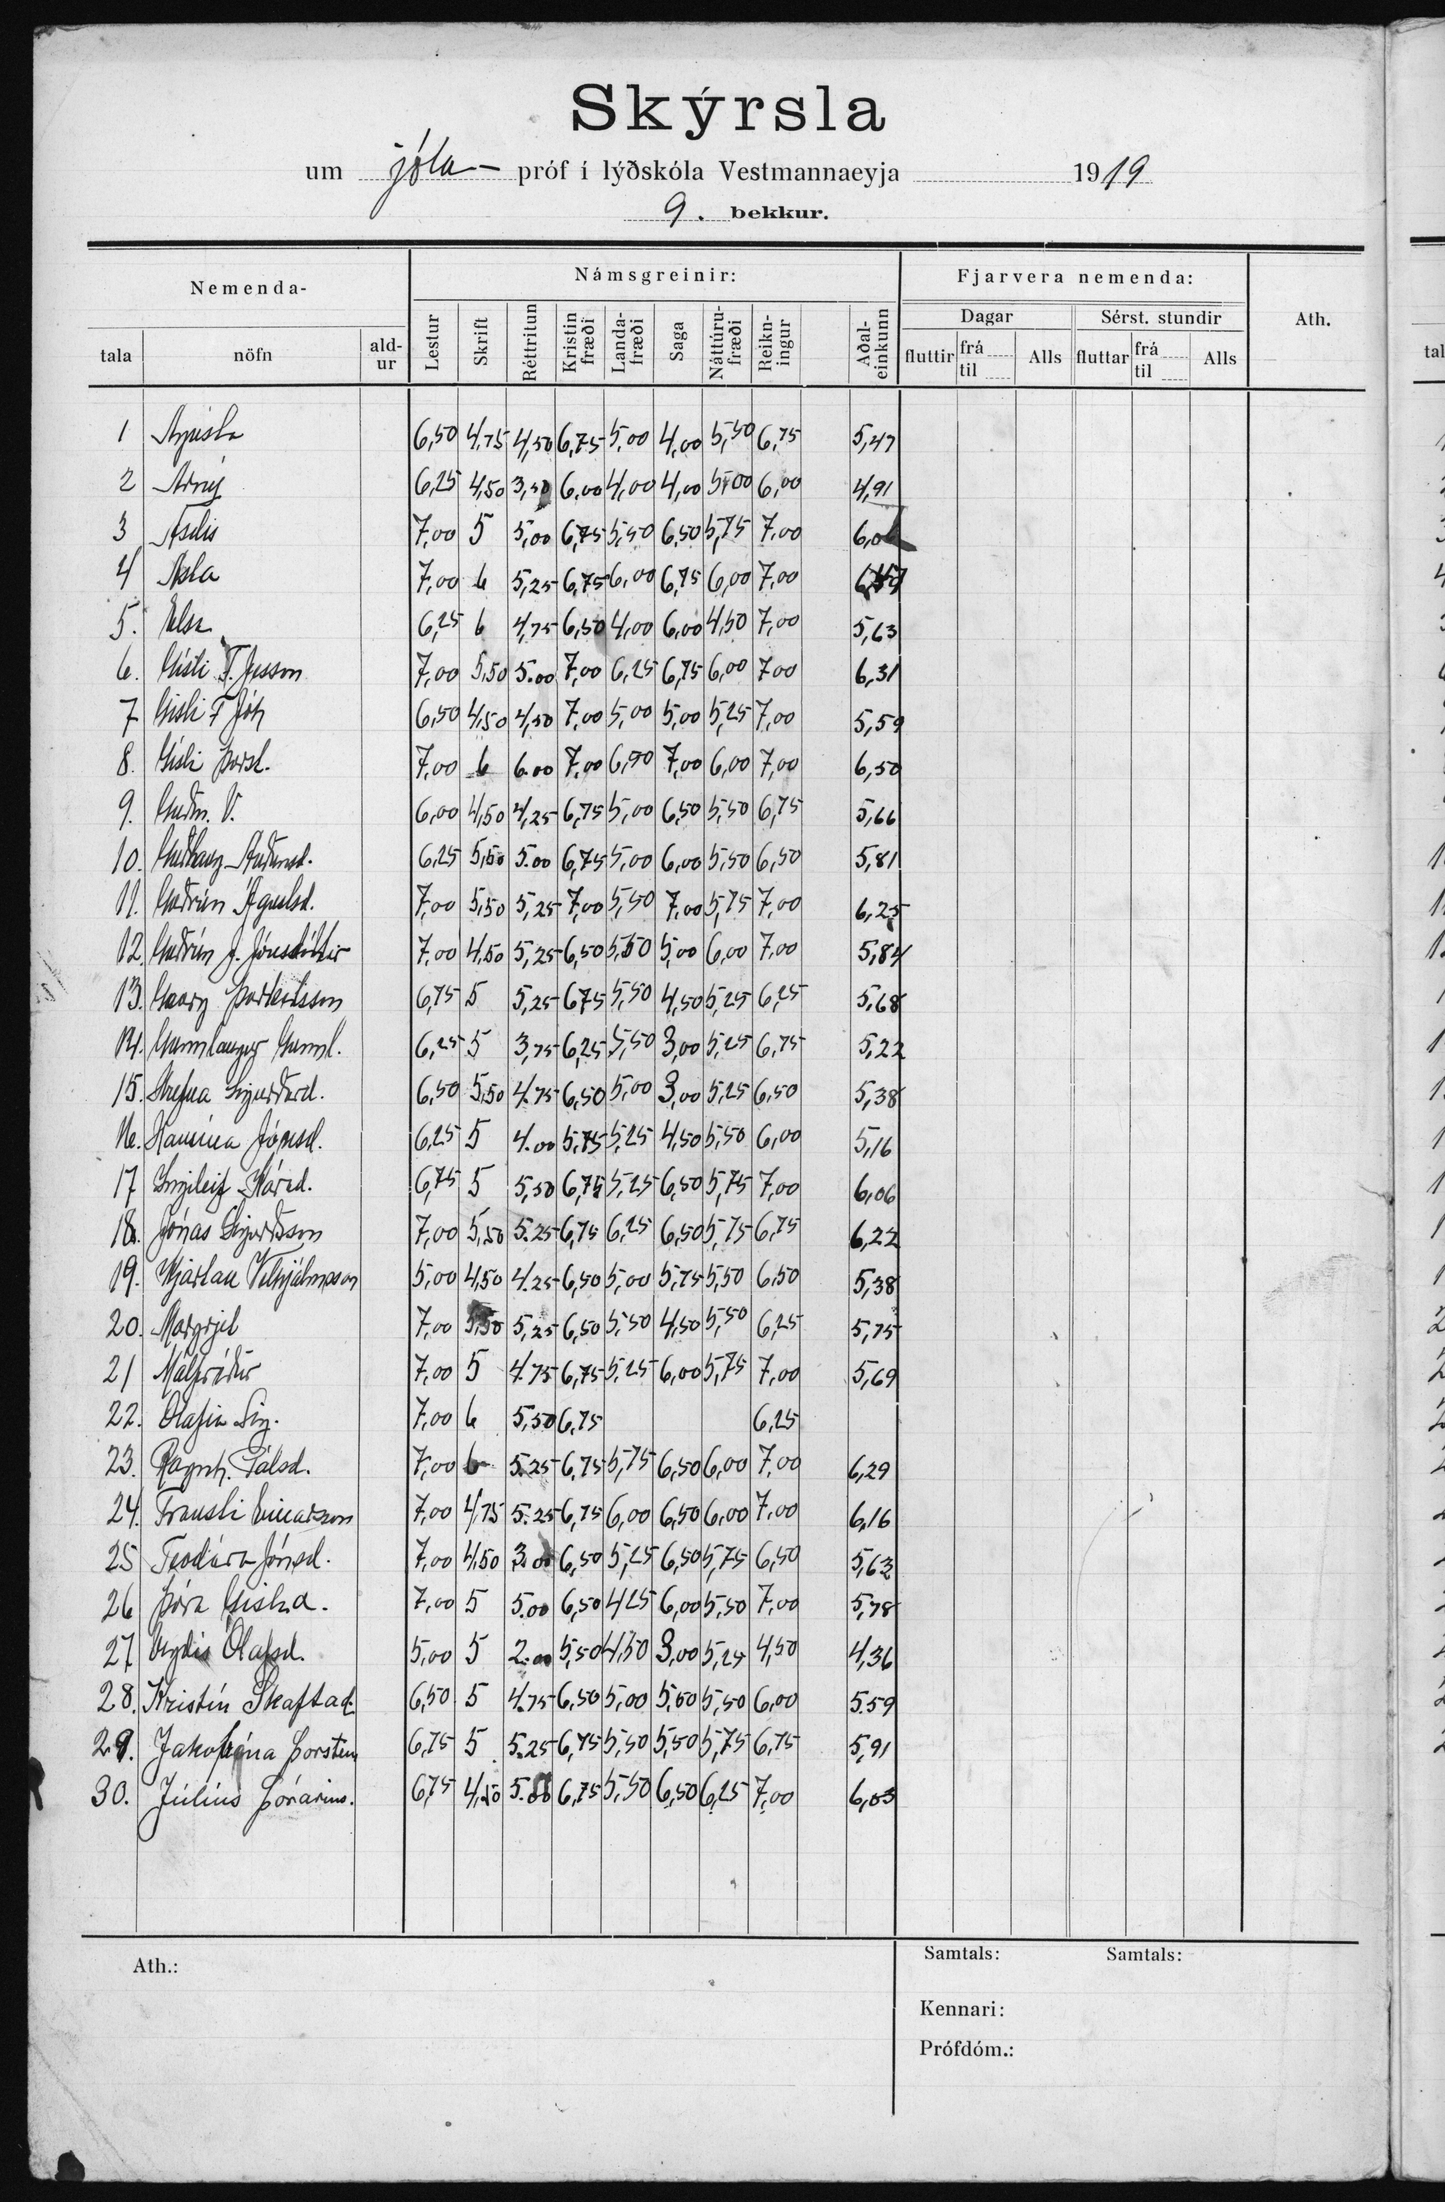 Skýrsla
um jóla- próf í lýðskóla Vestmannaeyja 1919
9. bekkur.
Nemenda- Námsgreinir: Fjarvera nemenda: Ath.
tala nöfn ald-ur Lestur Skrift Réttritun Kristin fræði Landa-fræði Saga Náttúru-fræði Reikn-ingur Aðal-einkunn Dagar Sérst. stundir
fluttir frá til Alls fluttar frá til Alls
1 6,50 4,75 4,50 6,75 5,00 4,00 5,50 6,75 5,47
2 Árný 6,25 4,50 3,50 6,00 4,00 4,00 5,00 6,00 4,91
3 Ásdís 7,00 5 5,00 6,75 5,50 6,50 5,75 7,00 6,06
4 Asta 7,00 6 5,25 6,75 6,00 6,75 6,00 7,00
5. Elsa 6,25 6 4,75 6,50 4,00 6,00 4,50 7,00 5,63
6. Gísli F. Jesson 7,00 5,50 5.00 7,00 6,25 6,75 6,00 7,00 6,31
7 Gísli F Jóh 6,50 4,50 4,50 7,00 5,00 5,00 5,25 7,00 5,59
8. Gísli Þorst. 7,00 6 6.00 7,00 6,50 7,00 6,00 7,00 6,50
9. Guðm. V. 6,00 4,50 4,25 6,75 5,00 6,50 5,50 6,75 5,66
10. Guðlaug Auðunsd. 6,25 5,50 5.00 6,75 5,00 6,00 5,50 6,50 5,81
11. Guðrún Ágústsd. 7,00 5,50 5,25 7,00 5,50 7,00 5,75 7,00 6,25
12. Guðrún J. Jónsdóttir 7,00 4,50 5,25 6,50 5,50 5,00 6,00 7,00 5,84
13. Georg Þorkelsson 6,75 5 5,25 6,75 5,50 4,50 5,25 6,25 5,68
14. Gunnlaugur Gunnl. 6,25 5 3,75 6,25 5,50 3,00 5,25 6,75 5,22
15. Hrefna Sigurðard. 6,50 5,50 4.75 6,50 5,00 3,00 5,25 6,50 5,38
16. Jónsd. 6,25 5 4.00 5,75 5,25 4,50 5,50 6,00 5,16
17 Ingileif Kárad. 6,75 5 5,50 6,75 5,25 6,50 5,75 7,00 6,06
18. Jónas Sigurðsson 7,00 5,50 5.25 6,75 6,25 6,50 5,75 6,75 6,22
19. Kjartan Vilhjálmsson 5,00 4,50 4.25 6,50 5,00 5,75 5,50 6,50 5,38
20. Margrjet 7,00 5,50 5,25 6,50 5,50 4,50 5,50 6,25 5,75
21 Málfríður 7,00 5 4.75 6,75 5,25 6,00 5,75 7,00 5,69
22. Ólafía Sig. 7,00 6 5,50 6,75 6,25
23. Ragnh. Pálsd. 7,00 6 5.25 6,75 5,75 6,50 6,00 7,00 6,29
24. Trausti Einarsson 7,00 4,75 5.25 6,75 6,00 6,50 6,00 7,00 6,16
25 Teodóra Jónsd. 7,00 4,50 3.00 6,50 5,25 6,50 5,75 6,50 5,63
26 Þóra Gislad. 7,00 5 5.00 6,50 4,25 6,00 5,50 7,00 5,78
27 Vigdís Ólafsd. 5,00 5 2.00 5,50 4,50 3,00 5,25 4,50 4,36
28. Kristín Skaftad. 6,50 5 4.75 6,50 5,00 5,50 5,50 6,00 5.59
29. Jakobína Þorstein 6,75 5 5.25 6,75 5,50 5,50 5,75 6,75 5,91
30. Júlíus Þórarins. 6,75 4,50 5.00 6,75 5,50 6,50 6,25 7,00 6,03
Ath.: Samtals: Samtals:
Kennari:
Prófdóm.: